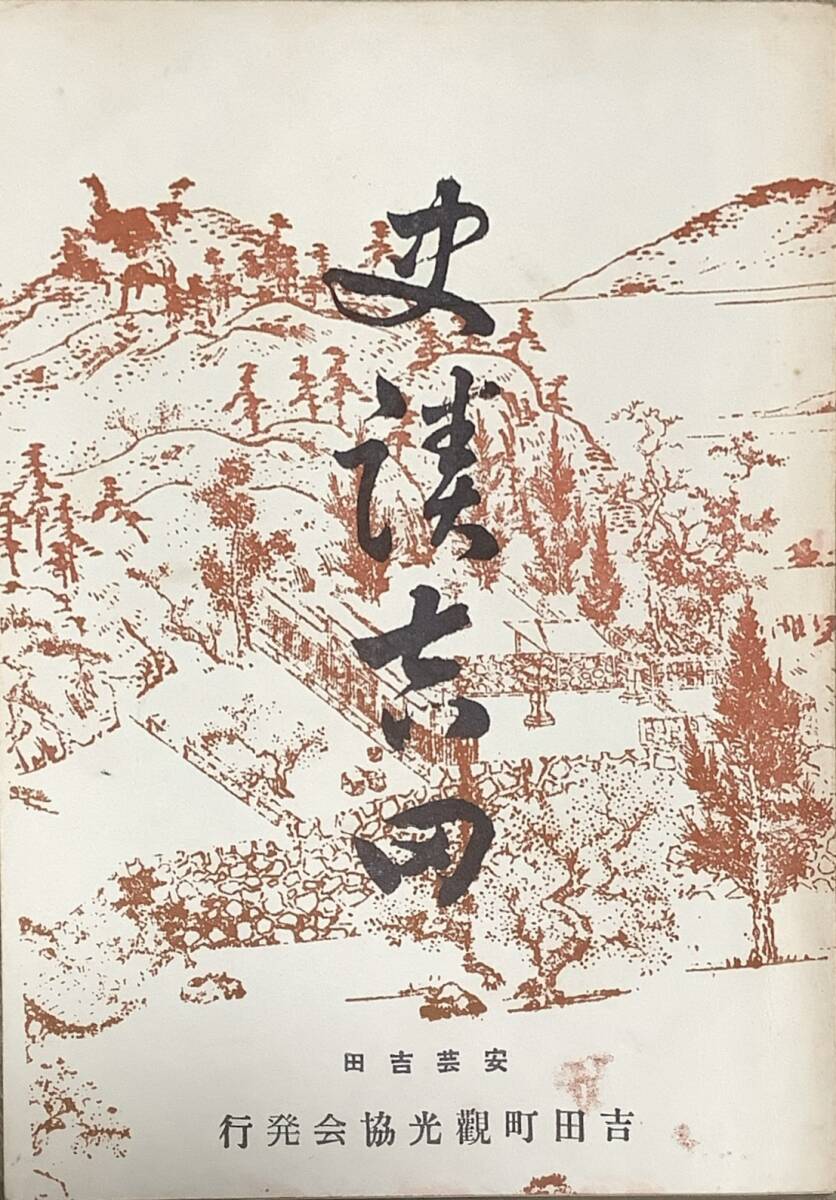 史談吉田
安芸吉田
吉田町観光協会発行